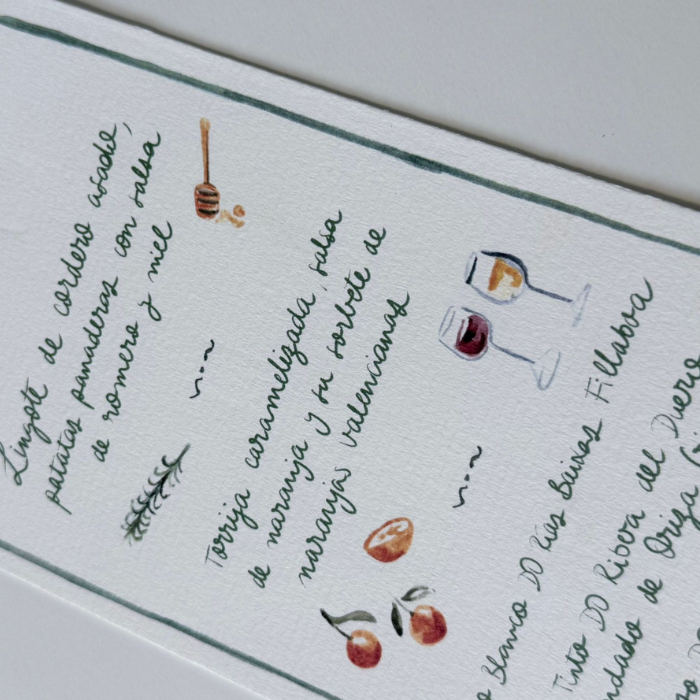 Lingote de cordero asado,
patatas panaderas con salsa
de romero y miel
Torrija caramelizada, salsa
de naranja y su sorbete de
naranjas valencianas
Blanco DO Rías Baixas Fillaboa
Tinto DO Ribera del Duero
de Oriza